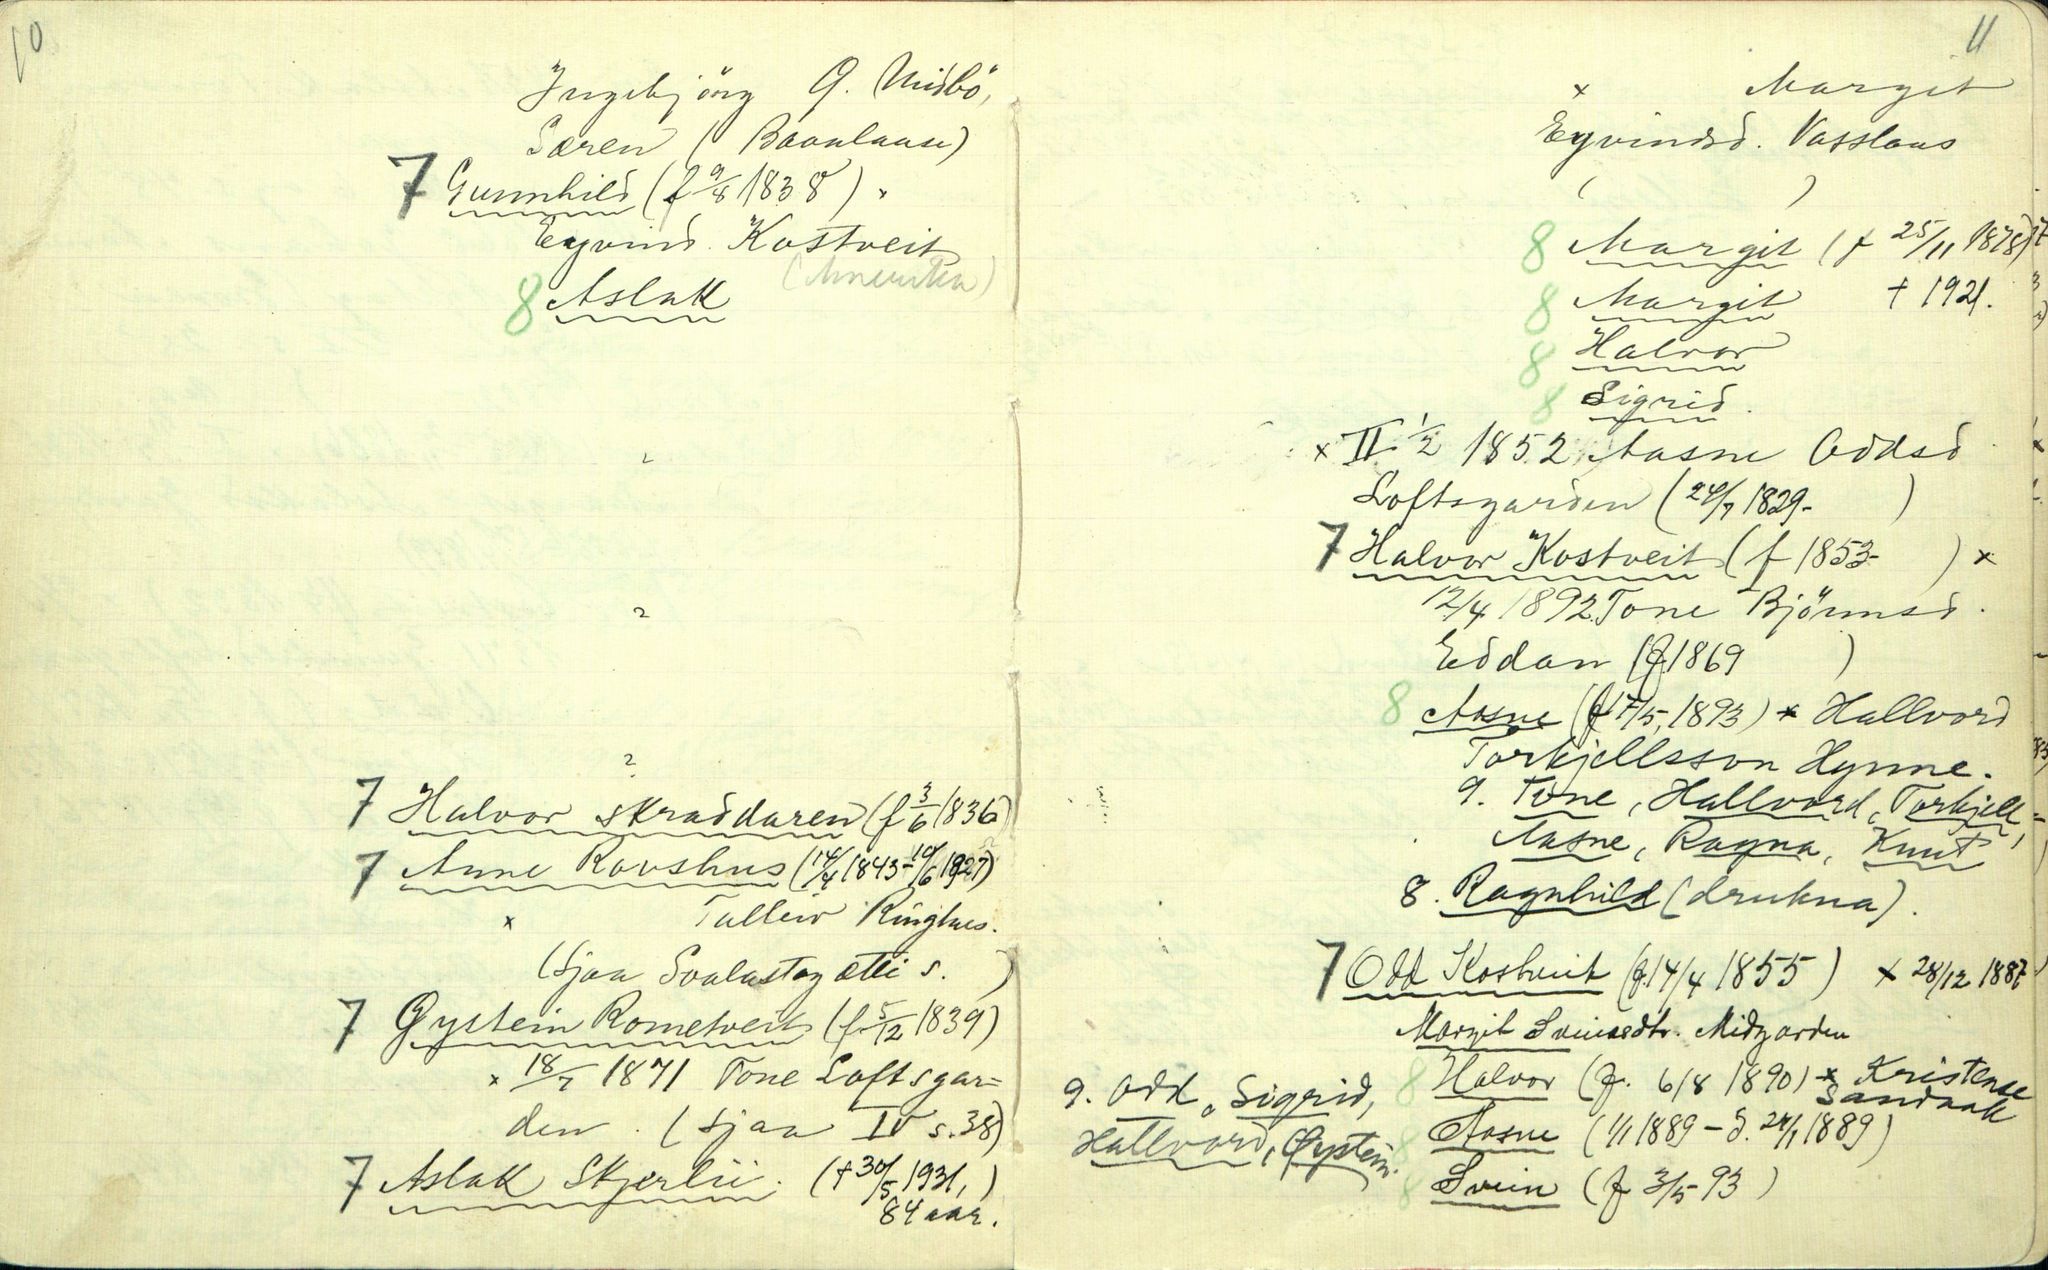 10
Ingebjörg O. Midbö,
Søren (Baanlaase)
7 Gunnhild (f 9/8 1838) x
Eyvind Kostveit
(Amerika)
8 Aslak
?
?
7 Halvor skraddaren (f 3/6 1836)
7 Anne Rovshus (14/4 1843-10/6 1927)
x Talleiv Ringhus.
(sjaa Svalastog ætti s. )
7 Øystein Rometveit (f. 5/12 1839)
x 18/7 1871 Tone Loftsgar=
den. (sjaa IV s. 38)
7 Aslak Skjerlii. († 30/5 1931,)
84 aar.
11
x Margit
Eyvindsd. Vasslaus
( )
8 Margit (f 25/11 1878)
8 Margit † 1921.
8 Halvor
8 Sigrid.
x II 1/2 1852 Aasne Oddsd
Loftsgarden (24/7 1829- )
7 Halvor Kostveit (f 1853- ) x
12/4 1892 Tone Björnsd.
Eddan (f 1869 )
8 Aasne (f 17/5, 1893) x Hallvord
Torkjellsson Hynne.
9. Tone, Hallvord, Torkjell,
Aasne, Ragna, Knut
8. Ragnhild (drukna).
7 Odd Kostveit (f. 14/4 1855) x 28/12 1887
Margit Sveinsdtr. Midgarden
8 Halvor (f. 6/8 1890) x Kristense
Sandaak
8 Aasne (1/1 1889 - d. 24/1 1889)
8 Svein (f 3/5 93)
9. Odd, Sigrid,
Hallvord, Øystein.